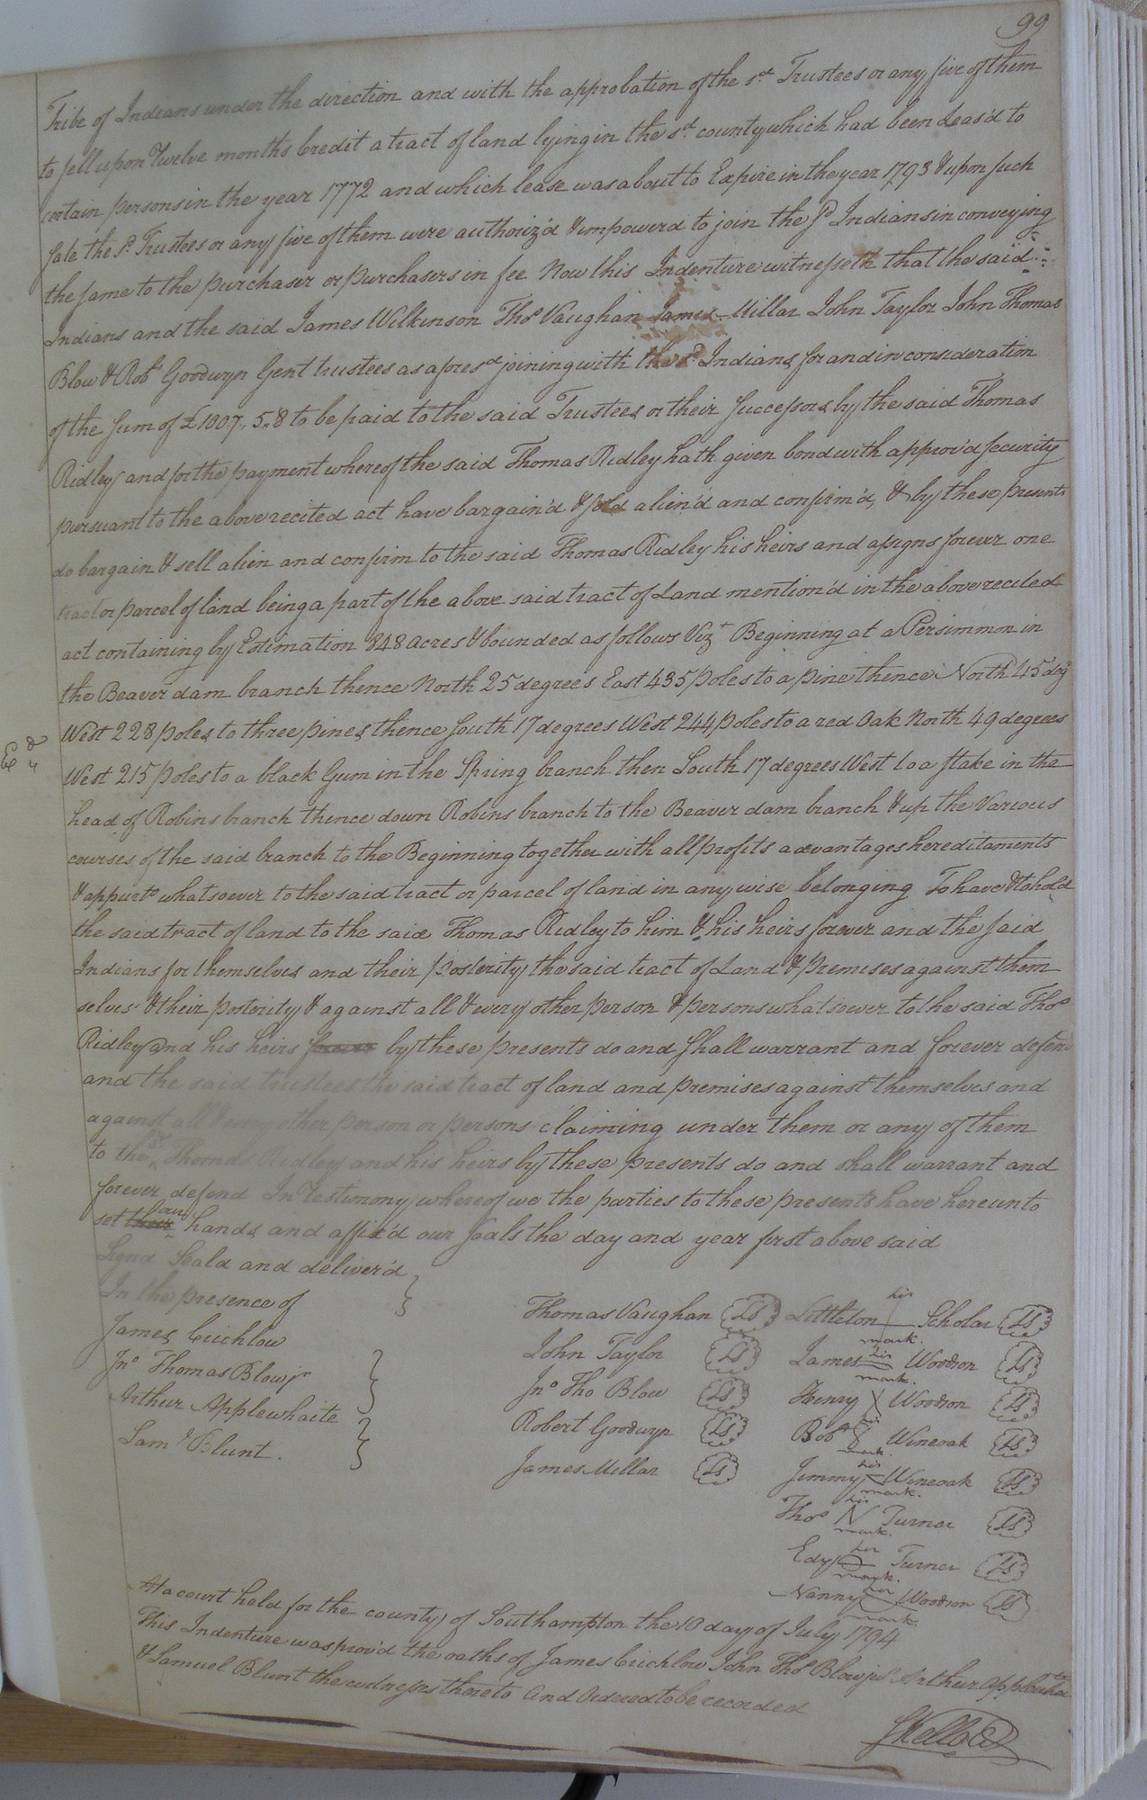 99
Tribe of Indians under the direction and with the approbation of the sd. Trustees or any five of them
to sell upon Twelve months Credit a tract of land lying in the sd. county which had been Leas'd to
certain persons in the year 1772 and which lease was about to Expire in the year 1793 & upon such
sale the sd. Trustees or any five of them were authoriz'd & empowerd to join the sd Indians in conveying
the same to the purchaser or purchasers in fee Now this Indenture witnesseth that the said
Indians and the said James Wilkinson Thos Vaughan James Millar John Taylor John Thomas
Blow & Robt Goodwyn Gent trustees as aforesd joining with the sd Indians for and in consideration
of the sum of £1007.5.8 to be paid to the said Trustees or their successors by the said Thomas
Ridley and for the payment whereof the said Thomas Ridley hath given bond with approv'd security
pursuant to the above recited act have bargain'd & sold alien'd and confirm'd, & by these presents
do bargain & sell alien and confirm to the said Thomas Ridley his heirs and assigns forever one
tract or parcel of land being a part of the above said tract of Land mention'd in the above recited
act containing by Estimation 848 acres & bounded as follows Vizt Beginning at a Persimmon in
the Beaver dam branch thence North 25 degrees East 435 poles to a pine thence North 45 deg
West 228 poles to three pines thence South 17 degrees West 244 poles to a red Oak North 49 degrees
West 215 poles to a black Gum in the Spring branch then South 17 degrees West to a stake in the
head of Robins branch thence down Robins branch to the Beaver dam branch & up the Various
courses of the said branch to the Beginning together with all profits advantages hereditaments
& appurts whatsoever to the said tract or parcel of land in any wise belonging To have & to hold
the said tract of land to the said Thomas Ridley to him & his heirs forever and the said
Indians for themselves and their posterity the said tract of Land & premises against them
selves & their posterity & against all & every other person & persons whatsoever to the said Thos
Ridley and his heirs forever by these presents do and shall warrant and forever defend
and the said trustees the said tract of land and premises against themselves and
against all & every other person or persons claiming under them or any of them
to the sd. Thomas Ridley and his heirs by these presents do and shall warrant and
forever defend In Testimony whereof we the parties to these presents have hereunto
set their our hands and affix'd our seals the day and year first above said
Signd Seald and deliver'd
In the presence of
James Crichlow
Jno Thomas Blow jr
Arthur Applewhaite
Saml Blunt.
Thomas Vaughan LS
John Taylor LS
Jno Tho Blow LS
Robert Goodwyn LS
James Millar LS
Littleton his mark. Scholar LS
James his mark. Woodson LS
Henry Woodson LS
Bob his mark. Wineoak LS
Jimmy his mark. Wineoak LS
Thos his mark. Turner LS
Edy her mark. Turner LS
Nanny her mark Woodson LS
At a court held for the county of Southampton the 10 day of July 1794
This Indenture was prov'd the oaths of James Crichlow John Thos Blow jr Arthur Applewhaite
& Samuel Blunt the witnesses thereto and Ordered to be recorded